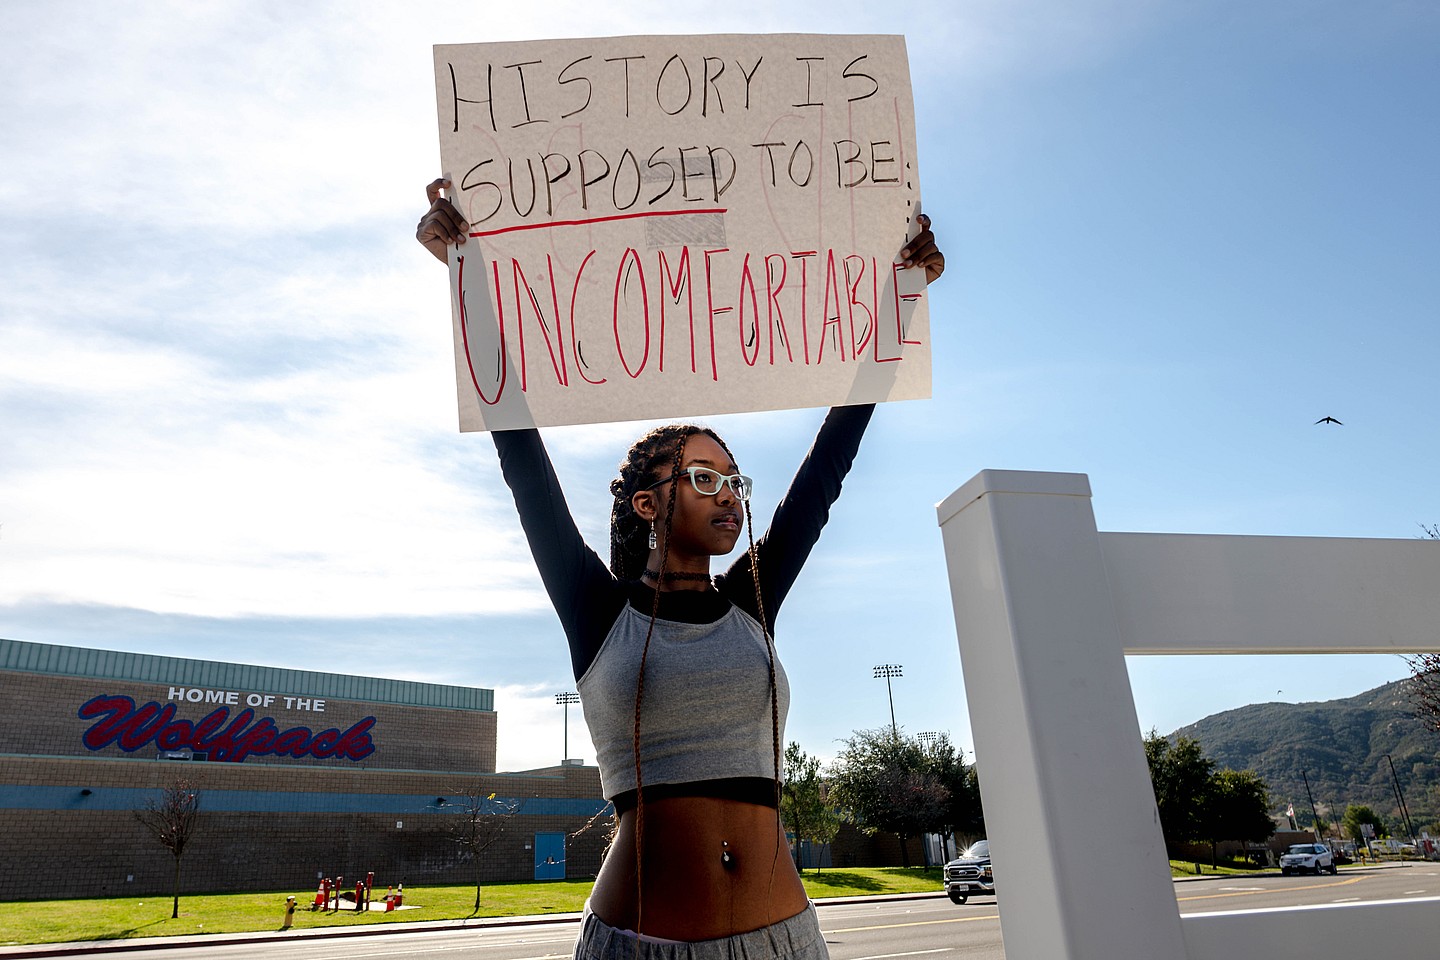 HISTORY IS
SUPPOSED TO BE:
UNCOMFORTABLE
HOME OF THE
Wolfpack